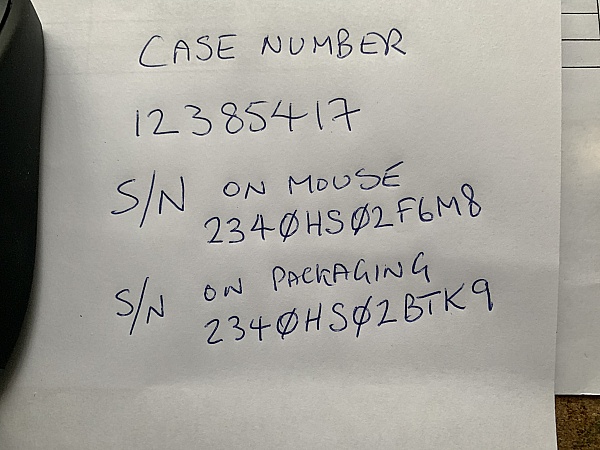 CASE NUMBER
12385417
S/N ON MOUSE
234ØHSØ2F6M8
S/N ON PACKAGING
234ØHSØ2BTK9